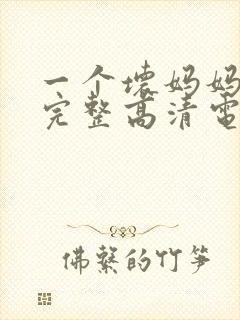 一个壊妈妈
完整高清電
佛繫的竹笋